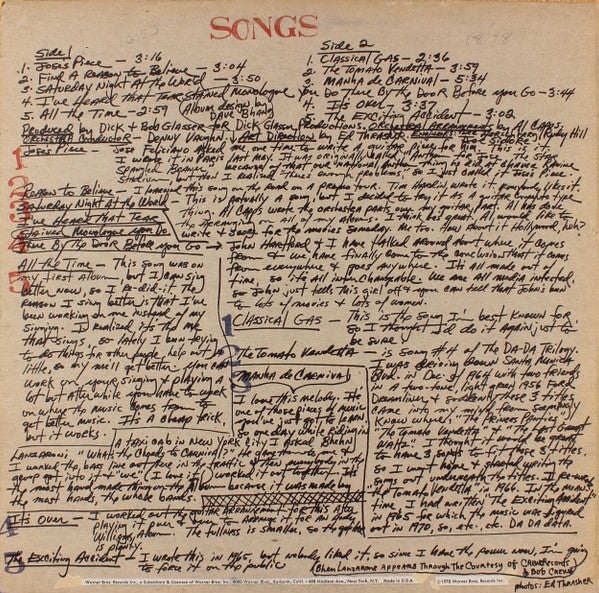 SONGS
Side 1
1. Joses Piece — 3:16
2. Find A Reason to Believe — 3:04
3. Saturday Night At the World — 3:50
4. I've Heard That Tear Stained Monologue You Do There By the Door Before you Go — 3:44
5. All the Time — 2:59 (Album design by Dave Bhang
Side 2
1. Classical Gas — 2:36
2. The Tomato Vendetta — 3:59
3. Manha de Carnival — 5:34
4. It's Over — 3:37
5. The Exciting Accident — 3:02
Produced by Dick & Bob Glasser for Dick Glasser Productions. Orchestral Arrangements by Al Capps.
Orchestral Conductor — Denny Vaughn / Art Direction by Ed Thrasher
Joses Piece — Jose Feliciano Asked me one time to write a guitar piece for him
I wrote it in Paris last May. It was originally called "Anthem for Jose, The Star
Spangled Beaner"
then I realized there's enough problems, so I just called it Joses Piece.
Reason to Believe — I learned this song on the road on a promo tour. Tim Hardin wrote it, everybody likes it.
Saturday Night At the World — This is actually a song, but I decided to try it as a guitar & orchestra type
thing. Al Capps wrote the orchestra parts over my guitar part. Al has done
the arrangements on all of my albums. I think he's great. Al would like to
write & score for the movies someday. Me too. How about it Hollywood, heh?
I've Heard That Tear
Stained Monologue You Do
There By the Door Before you Go → John Hartford & I have talked around about where it comes
from & we have finally come to the conclusion that it comes
from everywhere & goes anywhere. Its all made out of
time so it's all interchangeable. We are all media infected.
so John just tells this girl off & you can tell that John's been
to lots of movies & lots of women.
All the Time — This song was on
my first album, but I can sing
better now, so I re-did it. The
reason I sing better is that I've
been working on me instead of my
singing. I realized its the me
that sings, so lately I been trying
to do things for other people, help out a
little, so my me'll get better. You can
work on your singing & playing a
lot but after while you have to work
on where the music comes from to
get better music. It's a cheap trick,
but it works.
Classical Gas — This is the song I'm best known for,
so I thought I'd do it again just to
be sure.
The Tomato Vendetta — is Song #4 of the DA-DA Trilogy.
I was driving down Santa Monica
Blvd. in Dec. of 1964 with two friends
in a two tone, light green 1956 Ford
& suddenly these 3 titles
came into my mind from seemingly
know where; "The Princes Panties",
"The Tomato Vendetta" & "The Last Great
Waltz". I thought it would be great
to have 3 songs to fit those 3 titles,
so I went home & started writing the
songs out underneath the titles. I
the Tomato Vendetta in 1966. In the mean
time I had written "The Exciting Accident"
in 1965 for which the music was figured
out in 1970, so, etc. etc. DA DA DATA.
Manha de Carnival
I love this melody. Its
one of those pieces of music
you've just got to learn
so one day while riding in
a taxi cab in New York City I asked Bhen
Lanzaroni "Whats the Chords to Carnival?" He gave me one &
I worked the bass line out there in the traffic & then
It's Over — I worked out the guitar arrangement for this after
playing it over & over to arrange it, for an Andy
Williams Album. The fullness is smaller, so the guitar
is plenty.
The Exciting Accident — I wrote this in 1965, but nobody likes it, so since I have the power now, I'm going
to force it on the public
Bhen Lanzarone Appears Through the Courtesy of Crewe Records
& Bob Crewe
photos: Ed Thrasher
1
2
3
4
5
1
2
3
4
5
Warner Bros. Records Inc., a Subsidiary & Licensee of Warner Bros. Inc., 4000 Warner Blvd., Burbank, Calif. • 488 Madison Ave., New York, N.Y. Made in U.S.A. ©1970 Warner Bros. Records Inc.